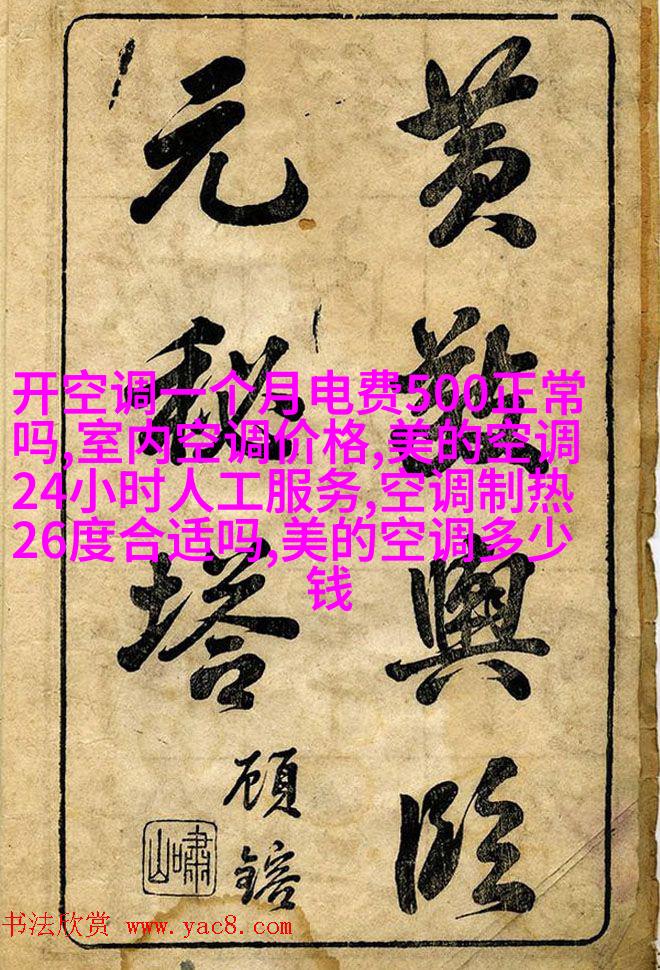 黄敬輿臨
元秘塔
顾鎔
嘯山
开空调一个月电费500正常
吗,室内空调价格,美的空调
24小时人工服务,空调制热
26度合适吗,美的空调多少
钱
书法欣赏 www.yac8.com